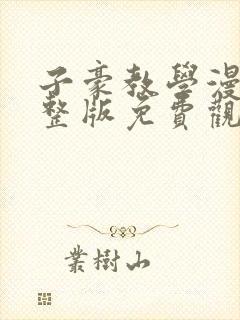 子豪教學漫
整版免費觀
葉樹山